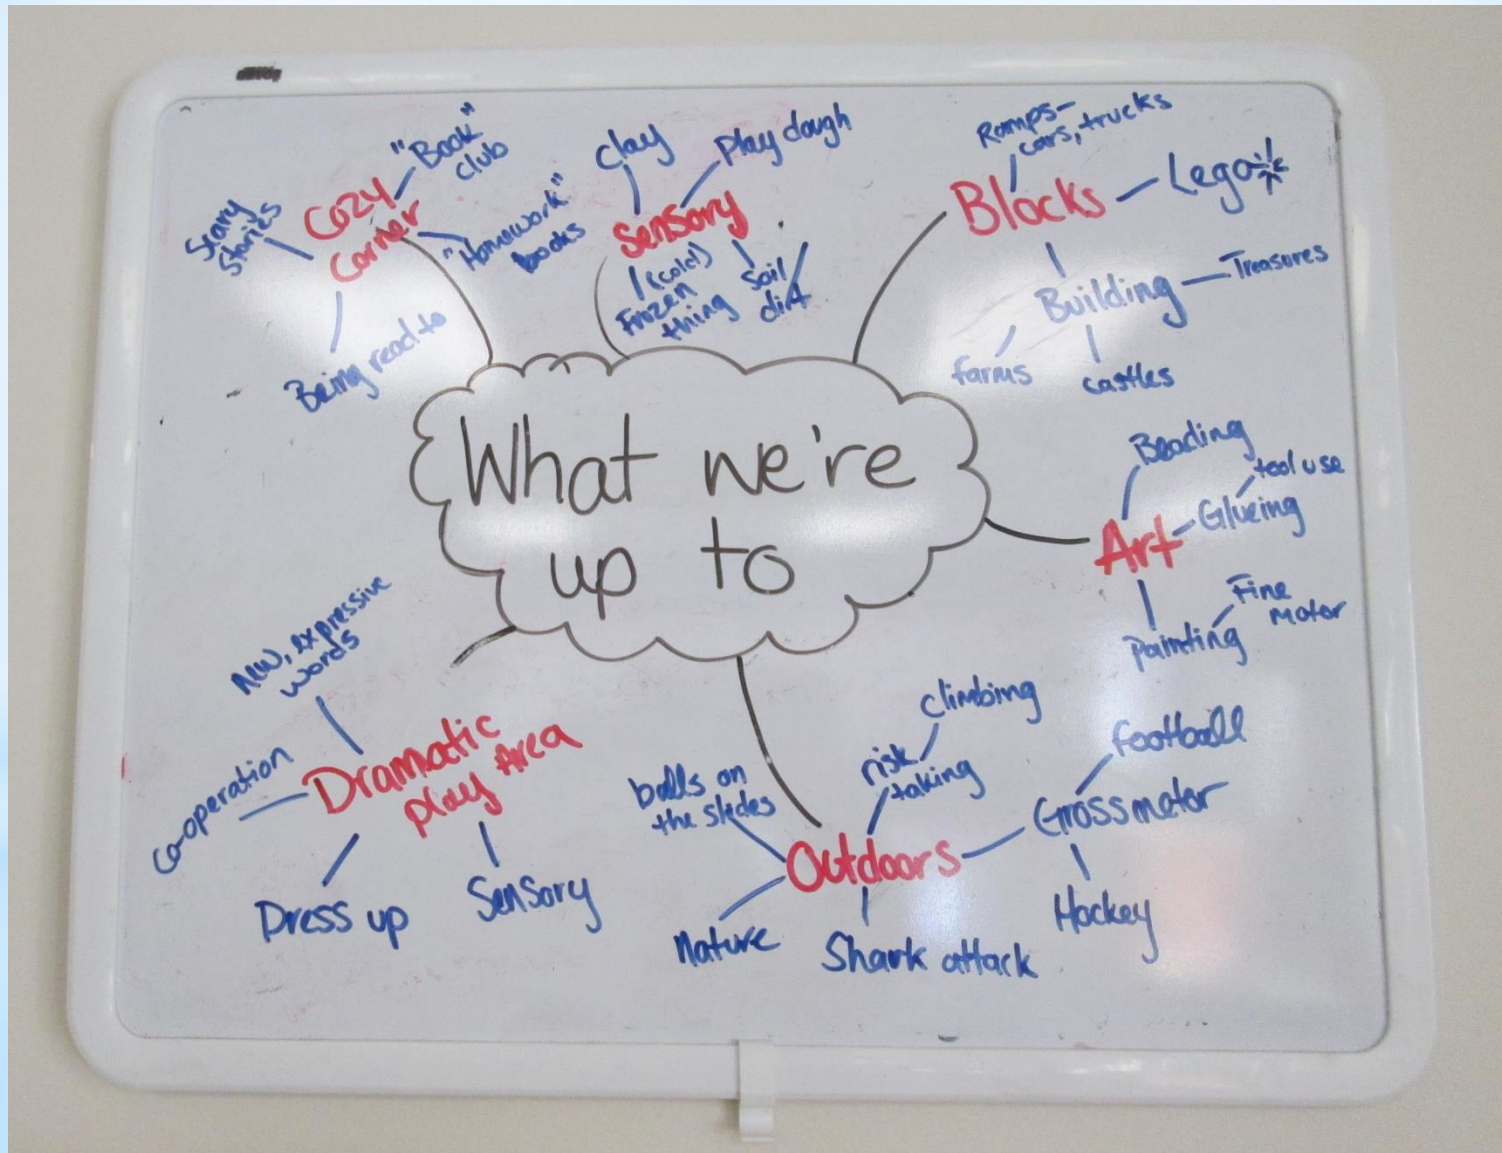 What we're
up to
Cozy
Corner
"Book"
club
"Homework"
books
Scary
Stories
Being read to
Sensory
Clay
Play dough
(cold)
Frozen
thing
Soil
dirt
Blocks
Ramps-
cars, trucks
Lego
Building
Treasures
farms
castles
Art
Beading
tool use
Glueing
Painting
Fine
Motor
Outdoors
risk
taking
climbing
Grossmotor
football
Hockey
Shark attack
Nature
balls on
the slides
Dramatic
play Area
New, expressive
words
Co-operation
Dress up
Sensory